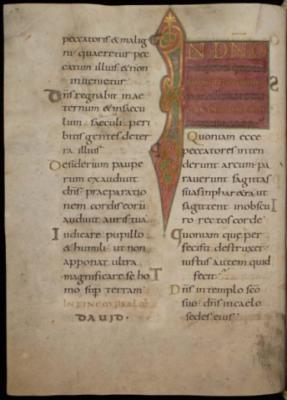 peccatoris & malig
ni quaeretur pec
catum illius & non
inuenietur
Dñs regnabit in ae
ternum & in saecu
lum saeculi peri
bitis gentes de ter
ra illius
Desiderium paupe
rum exaudiuit
dñs praeparatio
nem cordis eorũ
audiuit auris tua
Iudicare pupillo
& humili ut non
apponat ultra
magnificare se ho
mo sup terram
IN FINEM PSALM
DAVID
IN DNO
Quoniam ecce
peccatores inten
derunt arcum pa
rauerunt sagittas
suas in pharetra ut
sagittent in obscu
ro rectos corde
Quoniam que per
fecisti destruxer
iustus autem quid
fecit
Dñs in templo scõ
suo dñs in caelo
sedes eius